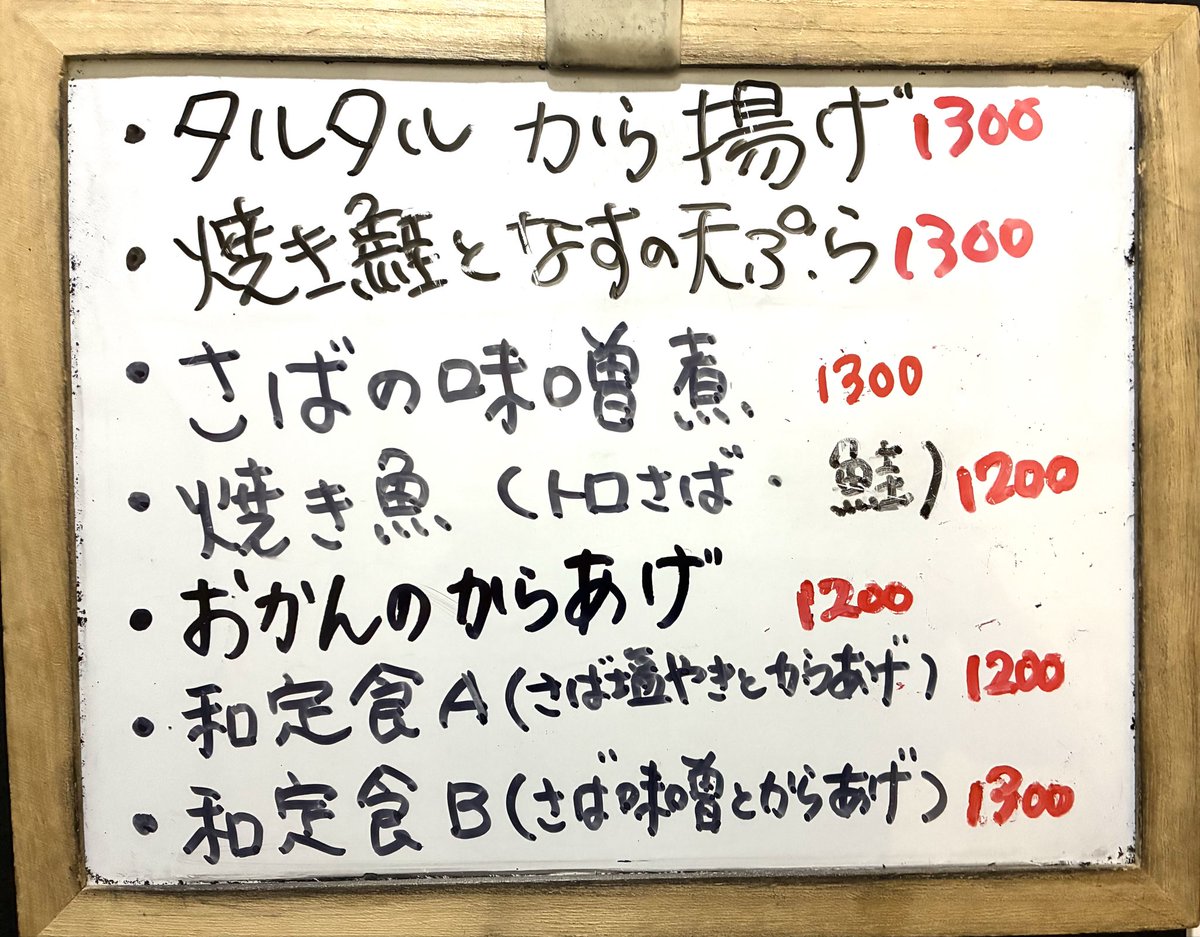 ・タルタル から揚げ 1300
・焼き鮭となすの天ぷら 1300
・さばの味噌煮 1300
・焼き魚 (トロさば・鮭) 1200
・おかんのからあげ 1200
・和定食A(さば塩やきとからあげ) 1200
・和定食B(さば味噌とからあげ) 1300